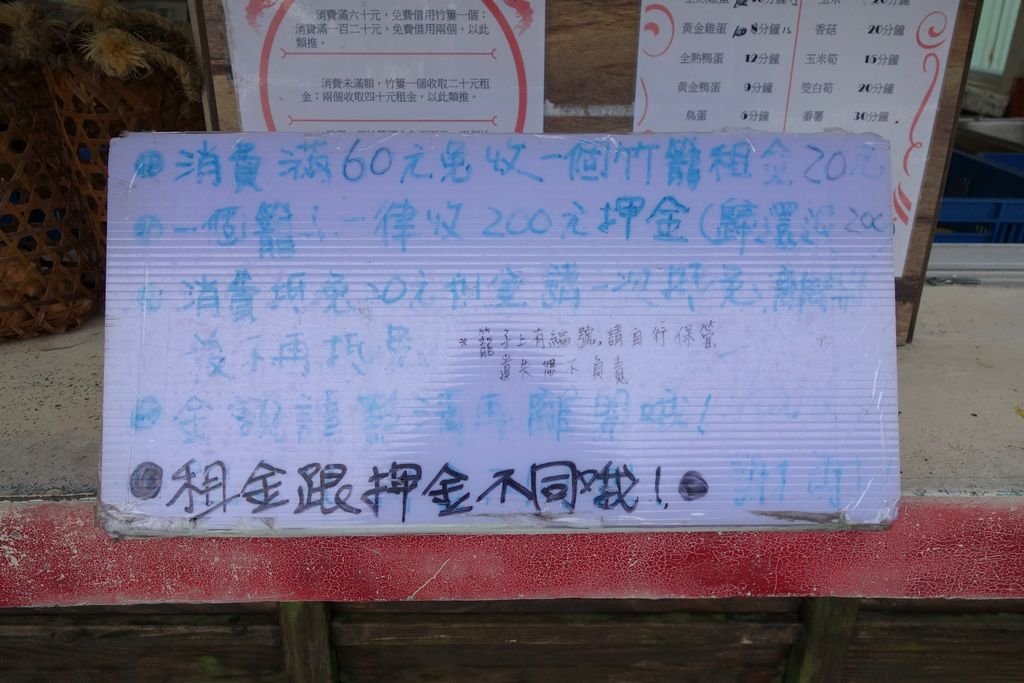 消費滿六十元，免費借用竹簍一個；
消費滿一百二十元，免費借用兩個，以此
類推。
消費未滿額，竹簍一個收取二十元租
金；兩個收取四十元租金，以此類推。
黃金雞蛋 8分鐘 香菇 20分鐘
全熟鴨蛋 12分鐘 玉米筍 15分鐘
黃金鴨蛋 9分鐘 筊白筍 20分鐘
鳥蛋 5分鐘 番薯 30分鐘
消費滿60元免收一個竹籠租金20元
一個籠子一律收200元押金(歸還退200
消費抵免20元租金請一次抵免,離開
後不再抵免
*籠子上有編號,請自行保管,
遺失恕不負責
金額請點清再離開哦!
●租金跟押金不同哦!●
謝謝!